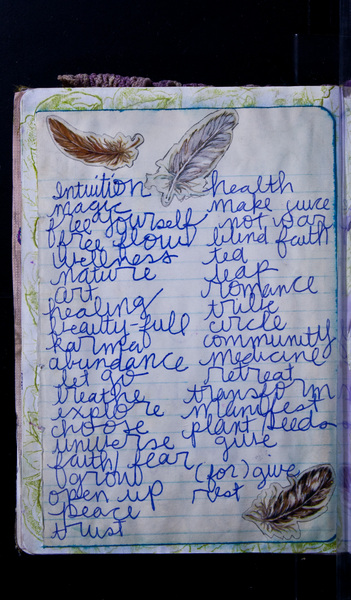 intuition
magic
free yourself
free flow
wellness
nature
art
healing
beauty-full
karma
abundance
let go
breathe
explore
choose
universe
faith/fear
grow
open up
peace
trust
health
make juice
not war
blind faith
ted
leap
romance
tribe
circle
community
medicine
retreat
transform
manifest
plant seeds
give
(for)give
rest